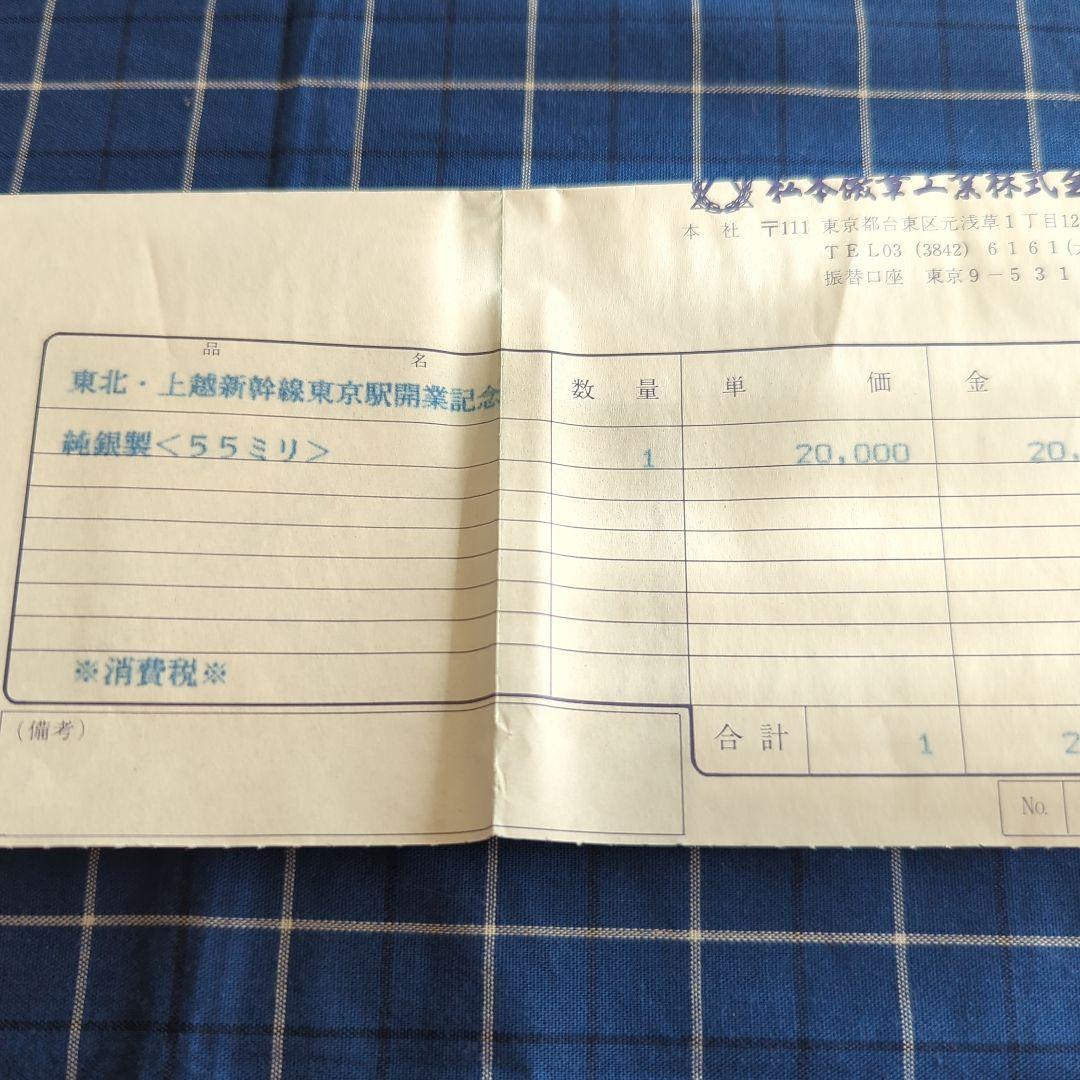 松本徽章工業株式会
本 社 〒111 東京都台東区元浅草1丁目12
TEL03 (3842) 6161(大
振替口座 東京9-531
品 名 数 量 単 価 金
東北・上越新幹線東京駅開業記念
純銀製<55ミリ> 1 20,000 20,
※消費税※
(備考)
合計 1 2
No.